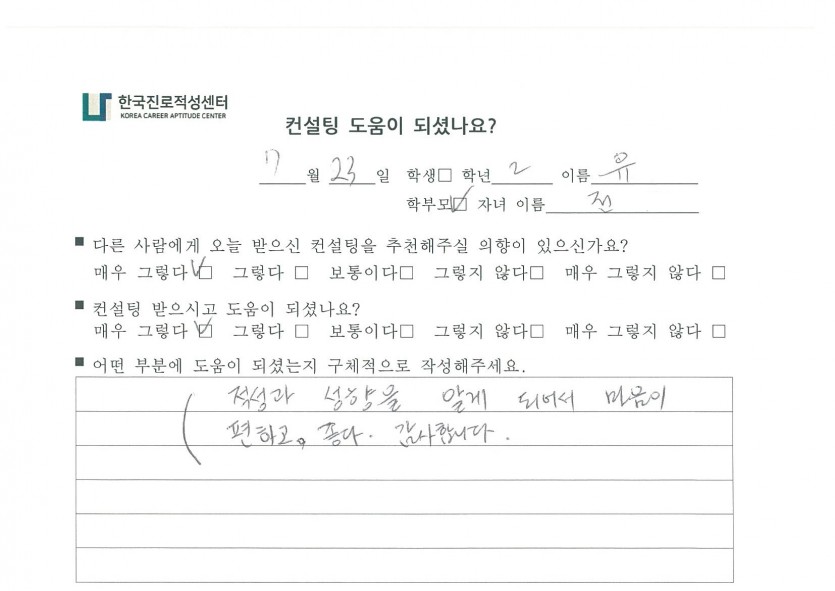 한국진로적성센터
KOREA CAREER APTITUDE CENTER
컨설팅 도움이 되셨나요?
7월 23일 학생□ 학년 2 이름 유
학부모☑ 자녀 이름 전
■ 다른 사람에게 오늘 받으신 컨설팅을 추천해주실 의향이 있으신가요?
매우 그렇다 ☑ 그렇다 □ 보통이다□ 그렇지 않다□ 매우 그렇지 않다 □
■ 컨설팅 받으시고 도움이 되셨나요?
매우 그렇다 ☑ 그렇다 □ 보통이다□ 그렇지 않다□ 매우 그렇지 않다 □
■ 어떤 부분에 도움이 되셨는지 구체적으로 작성해주세요.
적성과 성향을 알게 되어서 마음이
편하고, 좋다. 감사합니다.